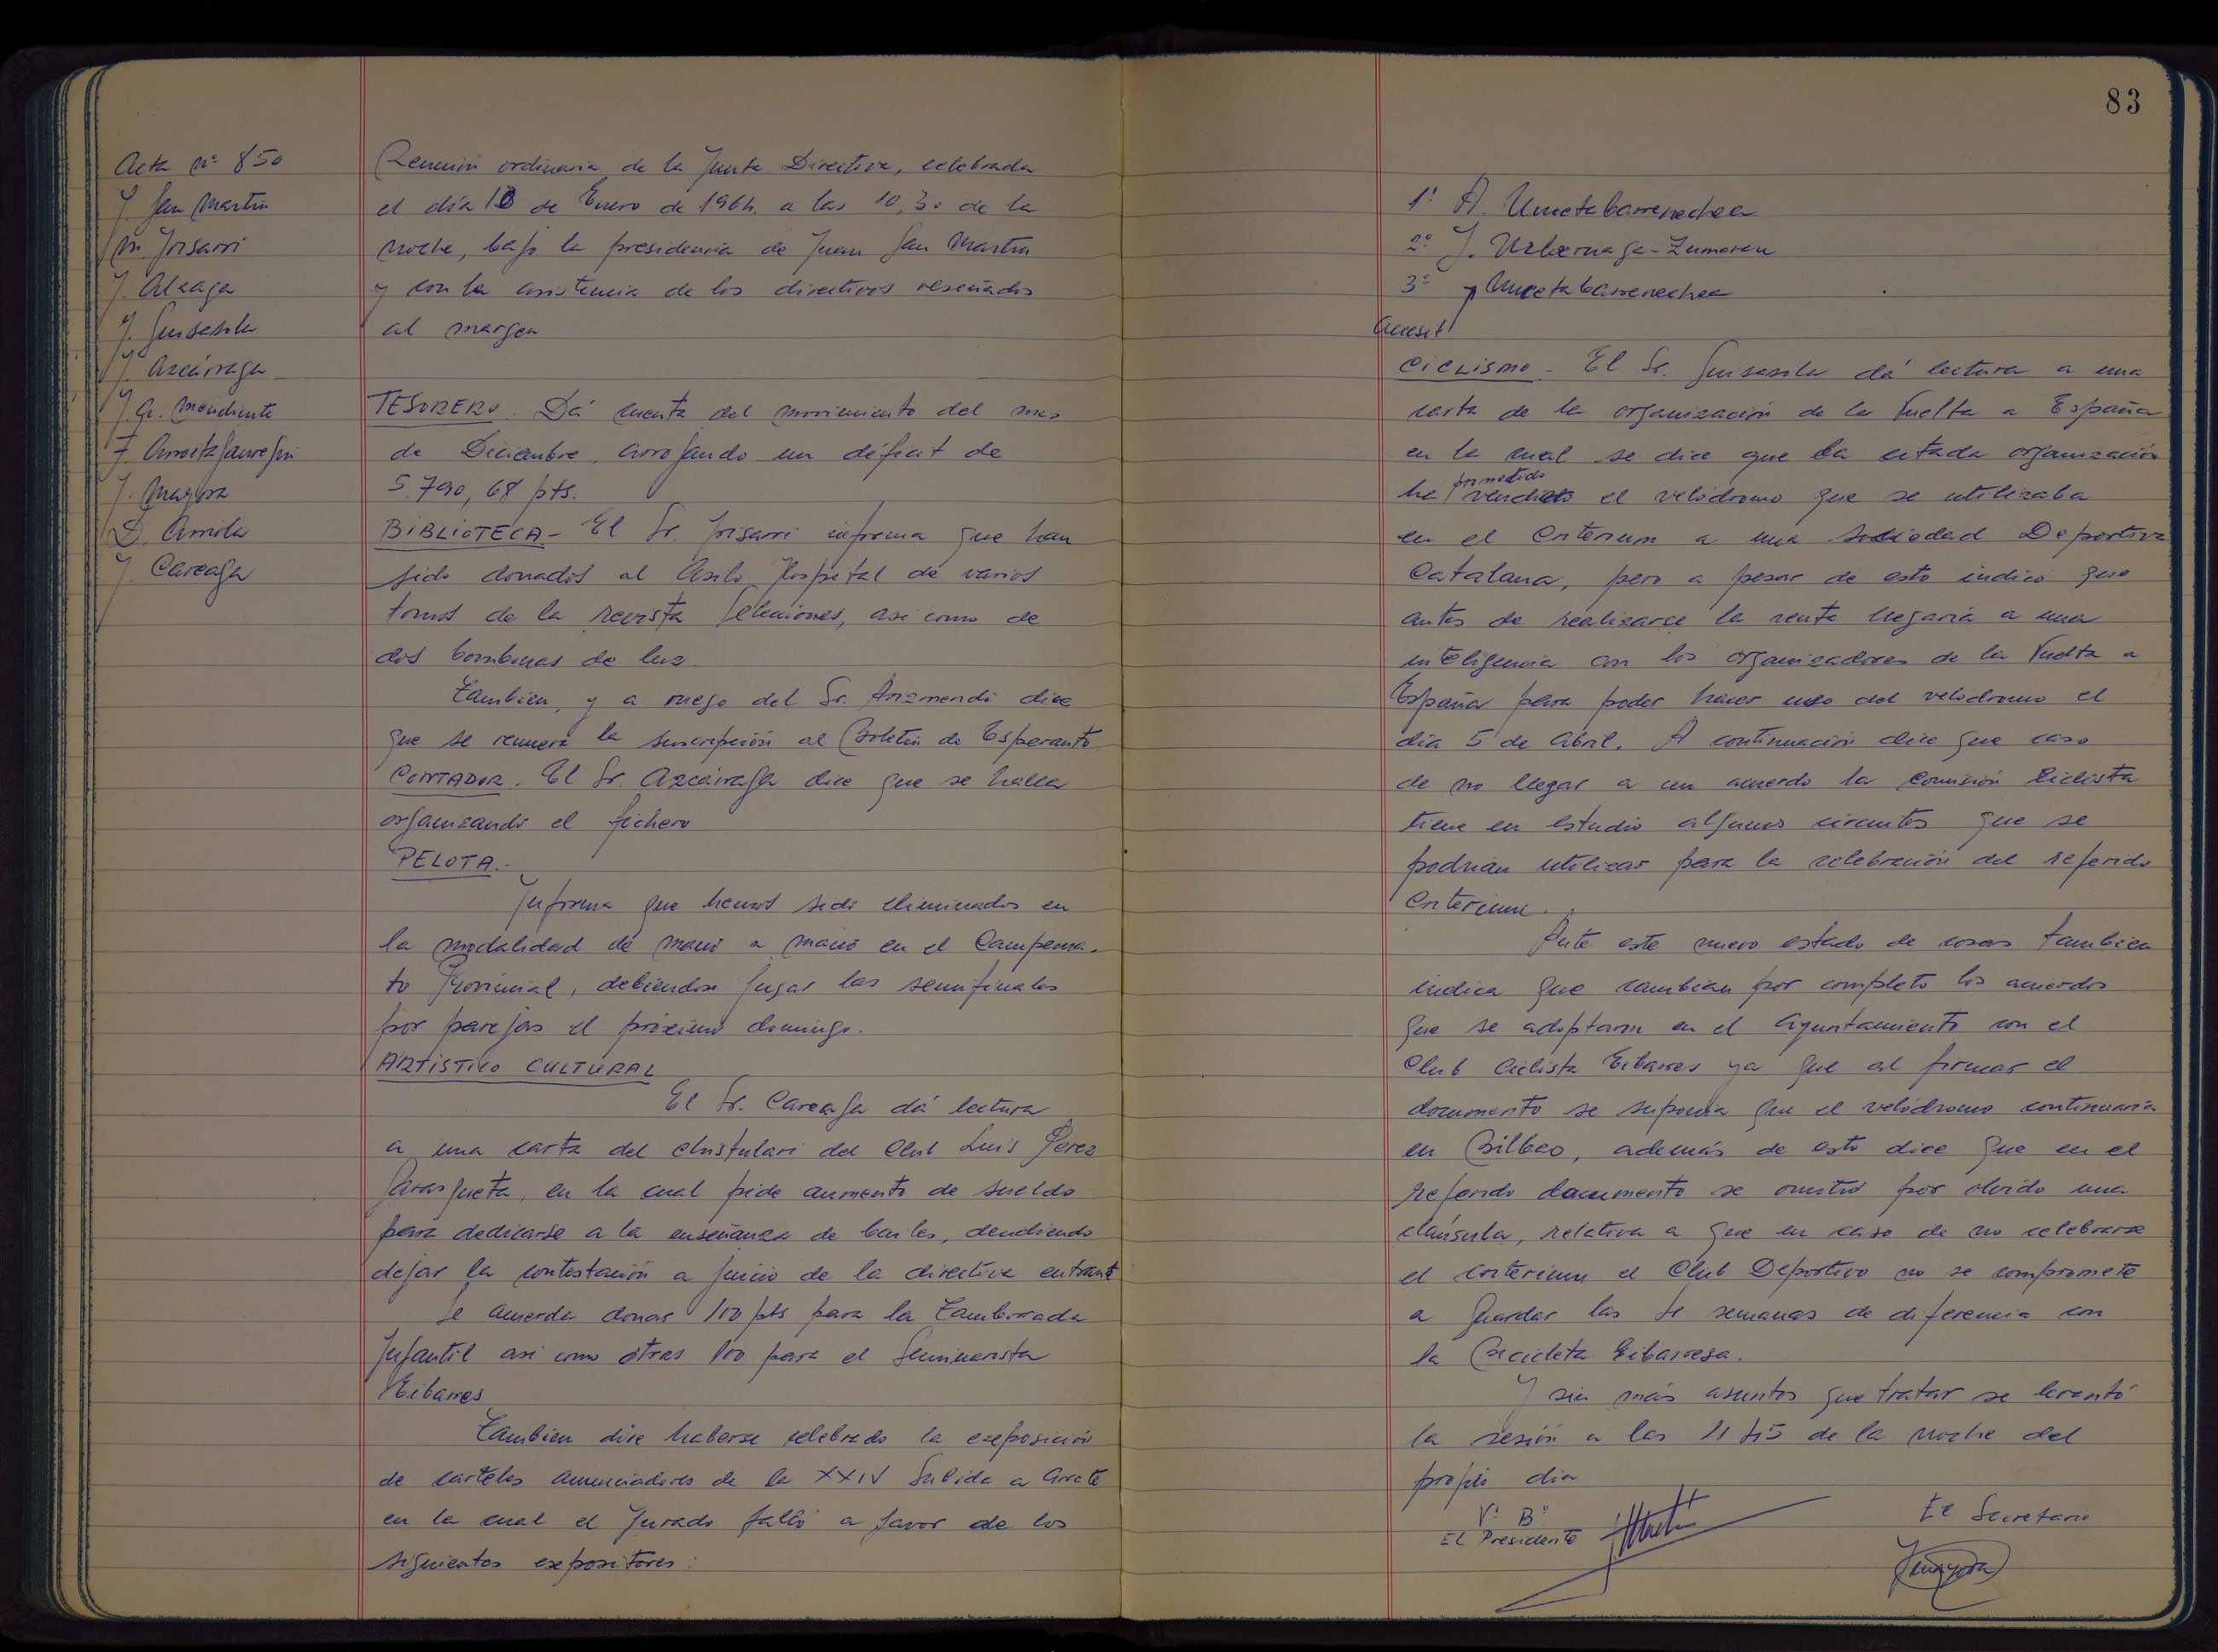 83
Acta nº 850
J. San Martin
M. Irisarri
J. Aleaga
J. Guisasola
J. Azcárraga
J. Gz. Mendiente
F. Arroitajauregui
J. Mayora
D. Arriola
J. Careaga
Reunión ordinaria de la Junta Directiva, celebrada
el día 18 de Enero de 1964. a las 10,30 de la
noche, bajo la presidencia de Juan San Martin
y con la asistencia de los directivos reseñados
al margen
TESORERO. Dá cuenta del movimiento del mes
de Diciembre, arrojando un déficit de
5.790,68 pts.
BIBLIOTECA - El Sr. Irisarri informa que han
sido donados al Asilo Hospital de varios
tomos de la revista Selecciones, asi como de
dos bombonas de luz.
Tambien, y a ruego del Sr. Arizmendi dice
que se renueva la suscripción al Boletin de Esperanto
CONTADOR. El Sr. Azcárraga dice que se halla
organizando el fichero
PELOTA.-
Informa que hemos sido eliminados en
la modalidad de mano a mano en el Campeona-
to Provincial, debiendose jugar las semifinales
por parejas el próximo domingo.
ARTISTICO CULTURAL
El Sr. Careaga dá lectura
a una carta del chistulari del Club Luis Perez
Sarasqueta, en la cual pide aumento de sueldo
para dedicarse a la enseñanza de bailes, decidiendo
dejar la contestación a juicio de la directiva entrante
Se acuerda donar 100 pts para la Tamborrada
Infantil asi como otras 100 para el Seminarista
Eibarres
Tambien dice haberse celebrado la exposición
de carteles anunciadores de la XXIV Subida a Arrate
en la cual el Jurado falló a favor de los
siguientes expositores:
1º A. Uncetabarrenechea
2º J. Uzbernaga-Zumaran
3º y Uncetabarrenechea
Accesit
CICLISMO - El Sr. Guisasola dá lectura a una
carta de la organización de la Vuelta a España
en la cual se dice que la citada organización
prometido
ha vendido el velódromo que se utilizaba
en el Criterium a una Sociedad Deportiva
Catalana, pero a pesar de esto indicó que
antes de realizarse la venta llegaria a una
inteligencia con los organizadores de la Vuelta a
España para poder hacer uso del velódromo el
día 5 de Abril. A continuación dice que caso
de no llegar a un acuerdo la Comisión Ciclista
tiene en estudio algunos circuitos que se
podrian utilizar para la celebración del referido
Criterium.
Ante este nuevo estado de cosas tambien
indica que cambian por completo los acuerdos
que se adoptaron en el Ayuntamiento con el
Club Ciclista Eibarres ya que al firmar el
documento se suponia que el velódromo continuaria
en Bilbao, además de esto dice que en el
referido documento se omitió por olvido una
cláusula, relativa a que en caso de no celebrarse
el criterium el Club Deportivo no se compromete
a guardar las tr semanas de diferencia con
la Bicicleta Eibarresa.
Y sin más asuntos que tratar se levantó
la sesión a las 11 de la noche del
propio dia
Vº Bº
El Presidente
El Secretario